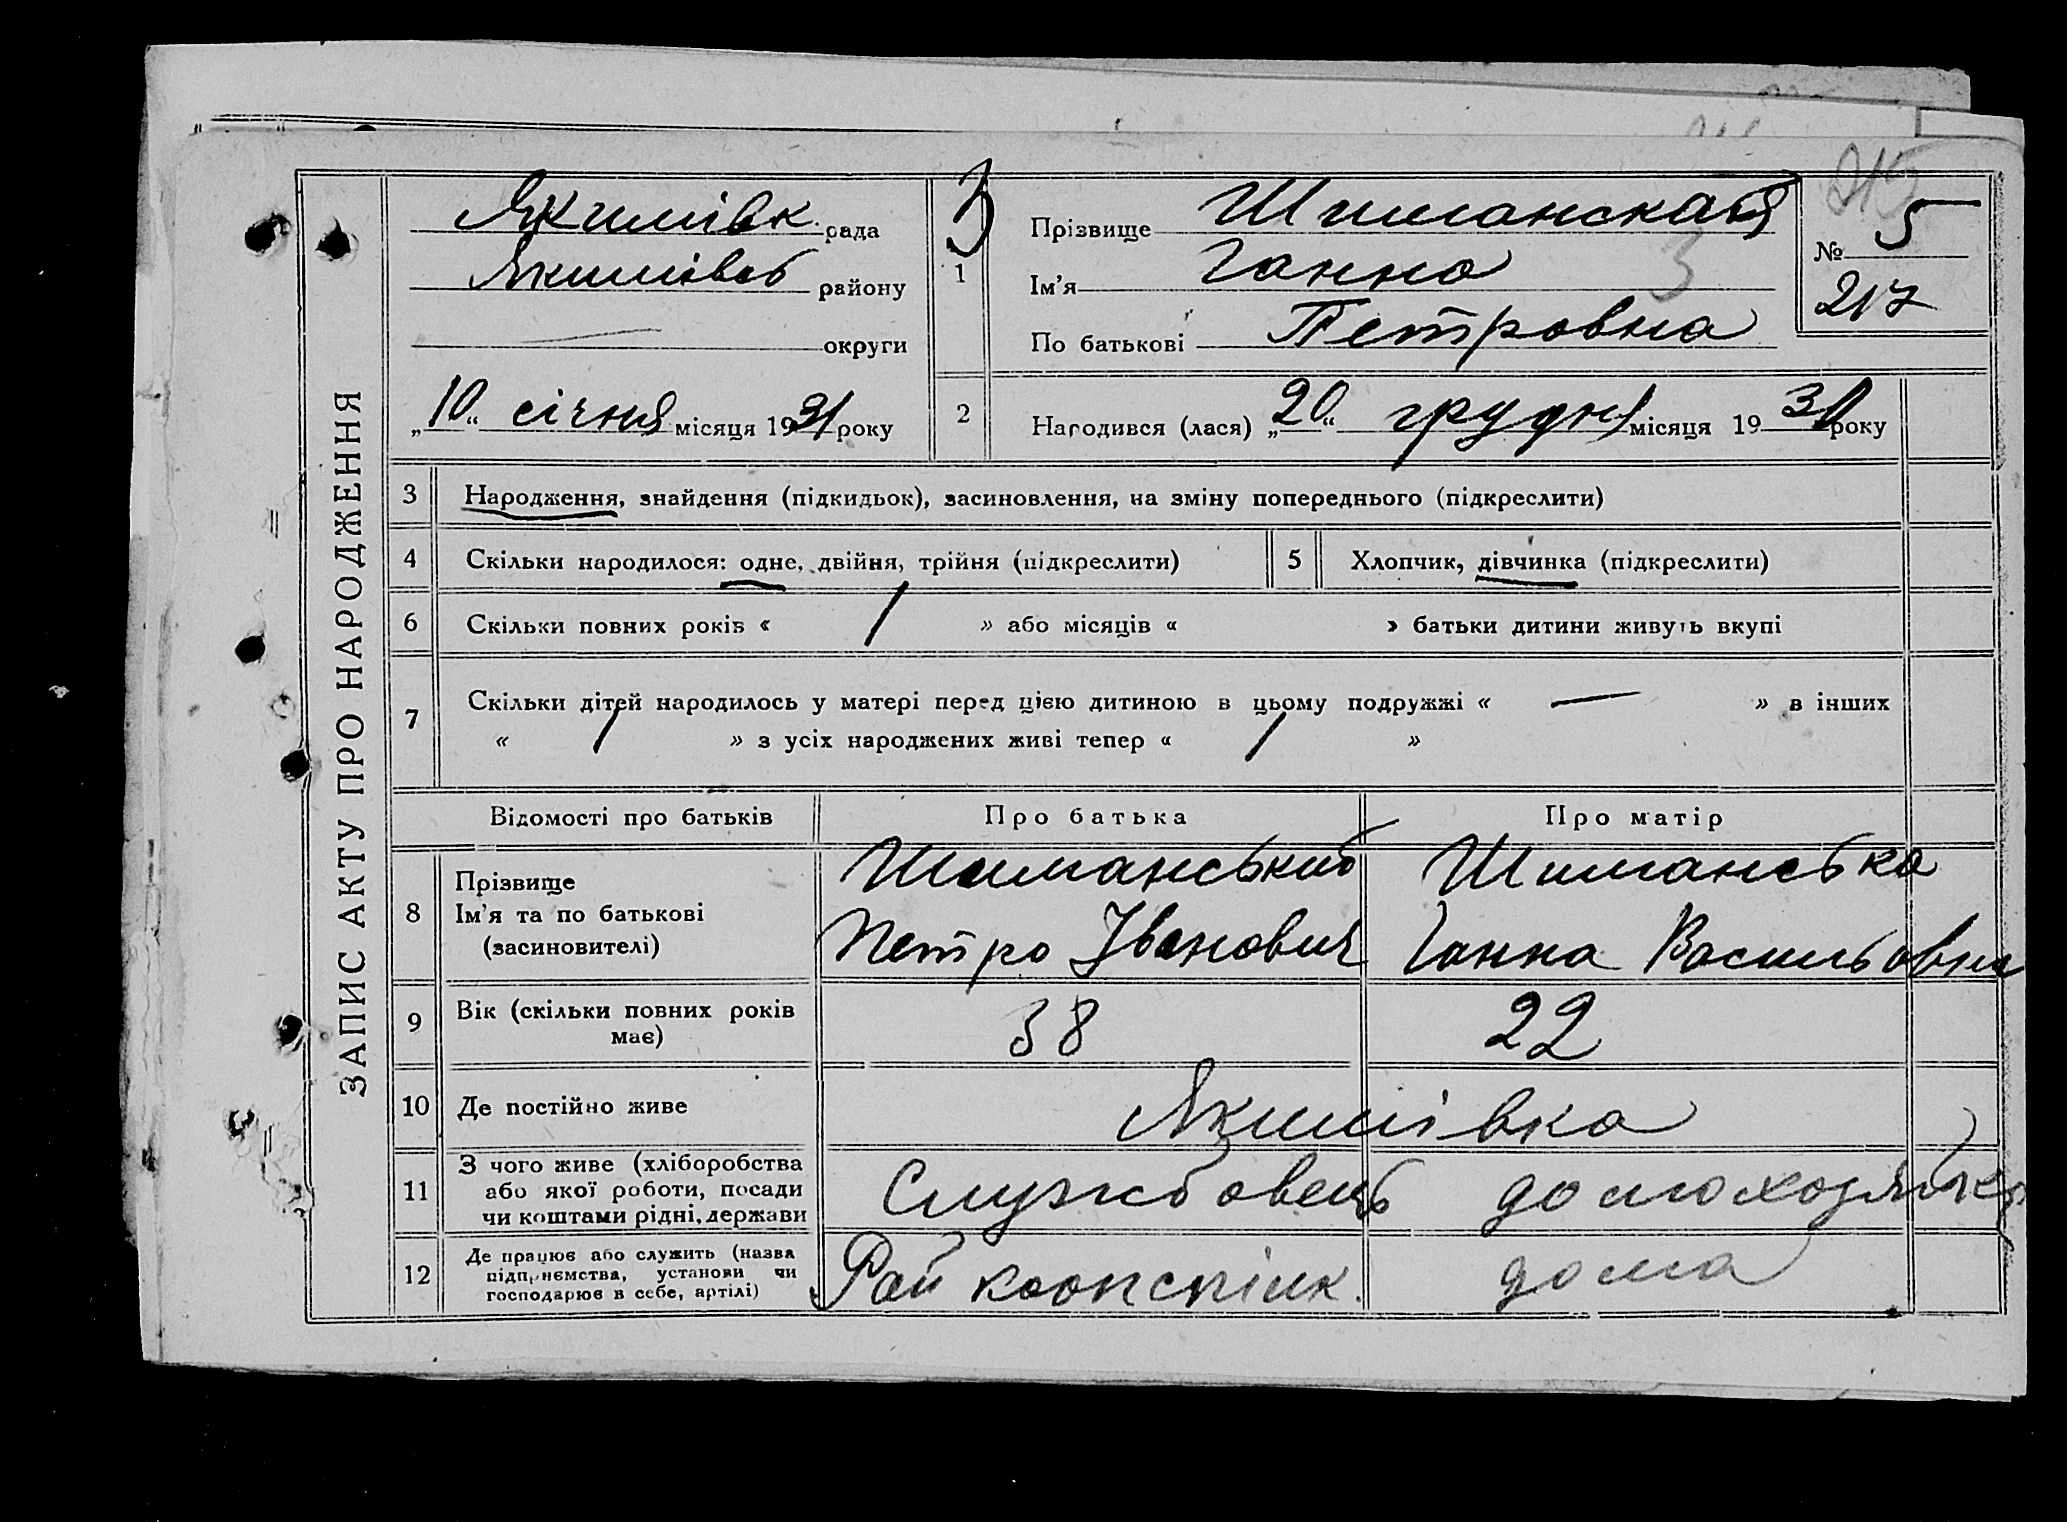 ЗАПИС АКТУ ПРО НАРОДЖЕННЯ
Якимівк. рада
Якимівсь району
округи
„10“ січня місяця 1931 року
3
1
Прізвище Шиманская
Ім’я Ганна
3
По батькові Петровна
№ 5
217
2 Народився (лася) „20“ грудня місяця 1930 року
3 Народження, знайдення (підкидьок), засиновлення, на зміну попереднього (підкреслити)
4 Скільки народилося: одне, двійня, трійня (підкреслити) 5 Хлопчик, дівчинка (підкреслити)
6 Скільки повних років « 1 » або місяців « » батьки дитини живуть вкупі
7 Скільки дітей народилось у матері перед цією дитиною в цьому подружжі « — » в інших
« 1 » з усіх народжених живі тепер « 1 »
Відомості про батьків Про батька Про матір
8 Прізвище
Ім’я та по батькові
(засиновителі)
Шиманський Шиманська
Петро Іванович Ганна Васильовна
9 Вік (скільки повних років
має)
38 22
10 Де постійно живе Якимівка
11 З чого живе (хліборобства
або якої роботи, посади
чи коштами рідні, держави
Службовець домохозяйка
12 Де працює або служить (назва
підприємства, установи чи
господарює в себе, артілі)
Рай коопспілк. дома